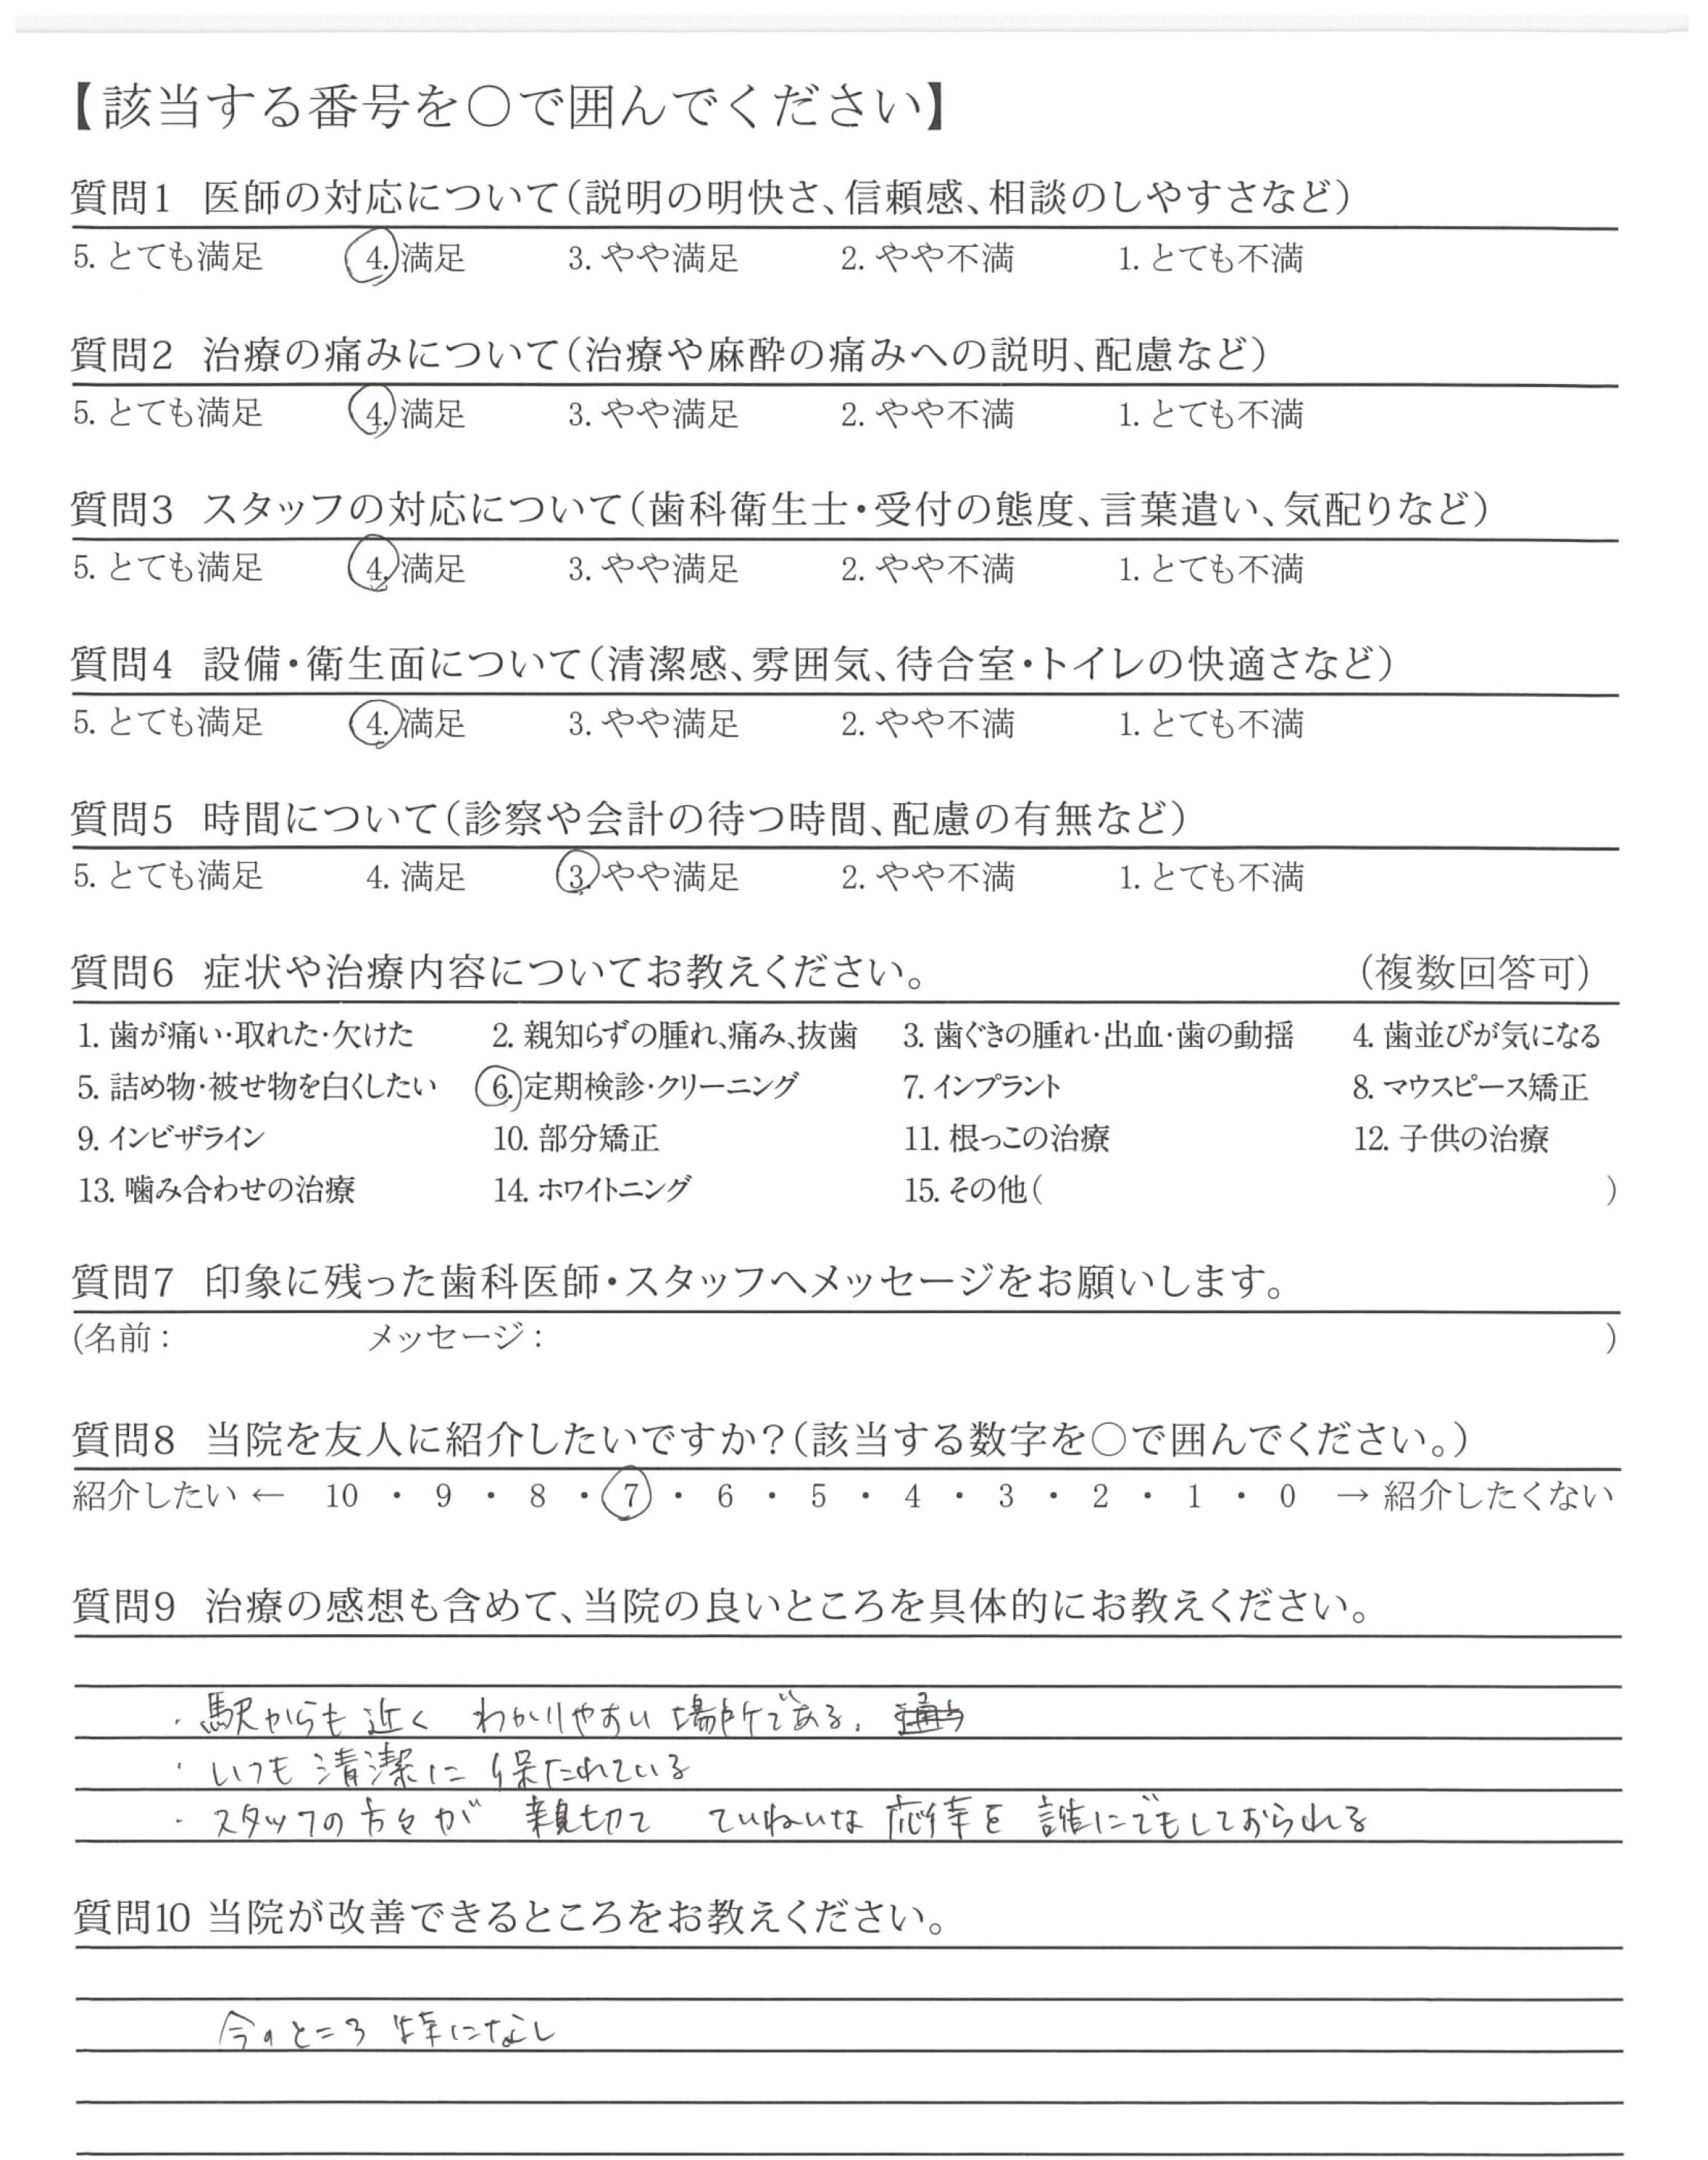 【該当する番号を○で囲んでください】
質問1 医師の対応について(説明の明快さ、信頼感、相談のしやすさなど)
5. とても満足 4. 満足 3. やや満足 2. やや不満 1. とても不満
質問2 治療の痛みについて(治療や麻酔の痛みへの説明、配慮など)
5. とても満足 4. 満足 3. やや満足 2. やや不満 1. とても不満
質問3 スタッフの対応について(歯科衛生士・受付の態度、言葉遣い、気配りなど)
5. とても満足 4. 満足 3. やや満足 2. やや不満 1. とても不満
質問4 設備・衛生面について(清潔感、雰囲気、待合室・トイレの快適さなど)
5. とても満足 4. 満足 3. やや満足 2. やや不満 1. とても不満
質問5 時間について(診察や会計の待つ時間、配慮の有無など)
5. とても満足 4. 満足 3. やや満足 2. やや不満 1. とても不満
質問6 症状や治療内容についてお教えください。 (複数回答可)
1. 歯が痛い・取れた・欠けた 2. 親知らずの腫れ、痛み、抜歯 3. 歯ぐきの腫れ・出血・歯の動揺 4. 歯並びが気になる
5. 詰め物・被せ物を白くしたい 6. 定期検診・クリーニング 7. インプラント 8. マウスピース矯正
9. インビザライン 10. 部分矯正 11. 根っこの治療 12. 子供の治療
13. 噛み合わせの治療 14. ホワイトニング 15. その他( )
質問7 印象に残った歯科医師・スタッフへメッセージをお願いします。
(名前： メッセージ： )
質問8 当院を友人に紹介したいですか?(該当する数字を○で囲んでください。)
紹介したい ← 10 ・ 9 ・ 8 ・ 7 ・ 6 ・ 5 ・ 4 ・ 3 ・ 2 ・ 1 ・ 0 → 紹介したくない
質問9 治療の感想も含めて、当院の良いところを具体的にお教えください。
・駅からも近く わかりやすい場所である。
・いつも清潔に保たれている
・スタッフの方々が 親切で ていねいな応待を誰にでもしておられる
質問10 当院が改善できるところをお教えください。
今のところ特になし